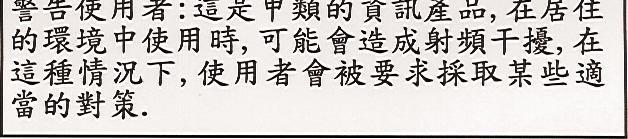 警告使用者:這是甲類的資訊產品,在居住
的環境中使用時,可能會造成射頻干擾,在
這種情況下,使用者會被要求採取某些適
當的對策.